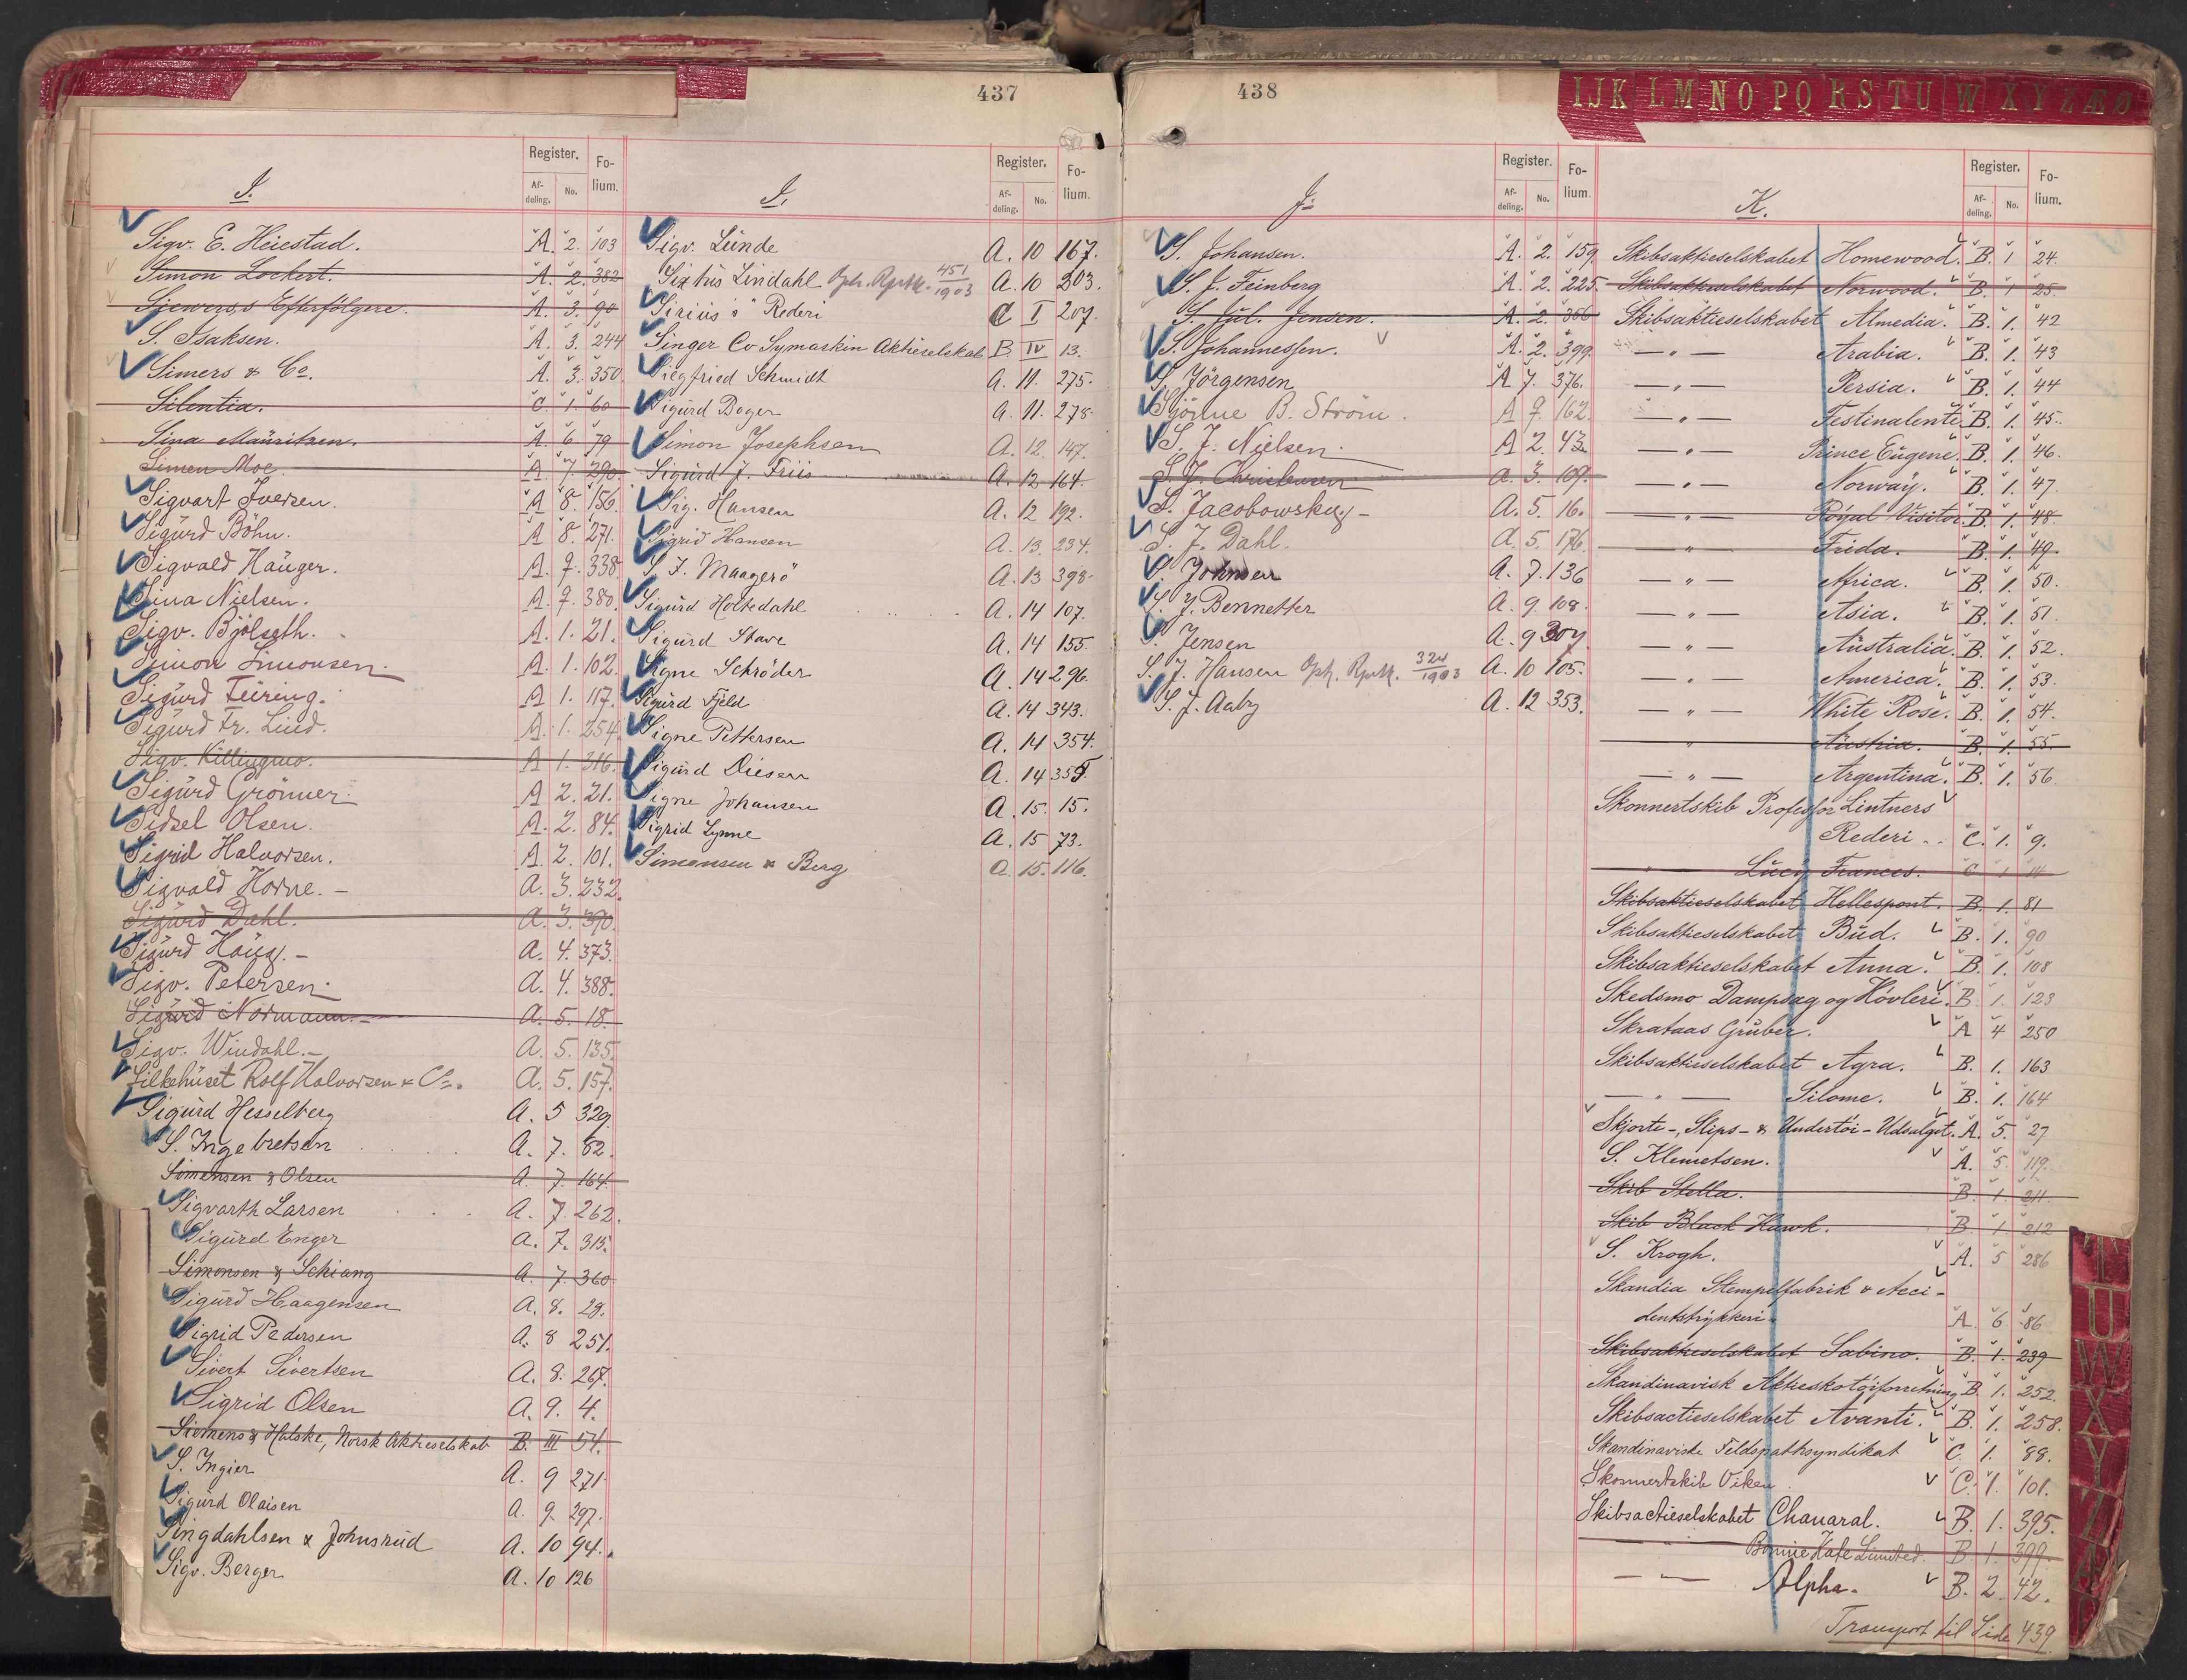 437
I.
Register.
Af-
deling.
No.
Fo-
lium.
Sigv. E. Heiestad. A. 2. 103
Simon Lockert. A. 2. 382
Sjewers,s Efterfölgere. A. 3. 90
S. Isaksen. A. 3. 244
Simers & Co. A. 3. 350.
Silentia. C. 1. 60
Sina Mauritzen. A. 6 79
Simen Moe. A 7 290.
Sigvart Iversen. A 8. 156.
Sigurd Böhn. A 8. 271.
Sigvald Hauger. A. 7. 338.
Sina Nielsen. A. 7. 380.
Sigv. Bjölseth. A. 1. 21.
Simon Simonsen. A. 1. 102.
Sigurd Feiring. A 1. 117.
Sigurd Fr. Lind. A. 1. 254.
Sigv. Killingmo. A 1. 316.
Sigurd Grönner. A 2. 21.
Sidsel Olsen. A. 2. 84.
Sigrid Halvorsen. A. 2. 101.
Sigvald Horne. - A. 3. 232.
Sigurd Dahl. A. 3. 390.
Sigurd Haug. - A. 4. 373.
Sigv. Petersen. A. 4. 388.
Sigurd Normann. - A. 5. 18.
Sigv. Windahl. - A. 5. 135.
Silkehuset Rolf Halvorsen & Co. A. 5. 157.
Sigurd Hesselberg A. 5 329.
S. Ingebretsen A. 7. 62.
Simensen & Olsen A. 7. 164.
Sigvarth Larsen A. 7. 262.
Sigurd Enger A. 7. 315.
Simonsen & Schiang A. 7. 360
Sigurd Haagensen A. 8. 29.
Sigrid Pedersen A. 8 251.
Sivert Sivertsen A. 8. 267.
Sigrid Olsen A. 9. 4.
Siemens & Halske, Norsk Aktieselskab B. III 54.
S. Ingier A. 9 271
Sigurd Olaisen A. 9. 297.
Singdahlsen & Johnsrud A. 10 94.
Sigv. Berger A. 10 126
I.
Register.
Af-
deling.
No.
Fo-
lium.
Sigv. Lunde A. 10 167.
Sixtus Lindahl Oph. Rpstk. 451/1903 A. 10 203.
"Sirius's" Rederi C I 207.
Singer Co Symaskin Aktieselskab B IV 13.
Siegfried Schmidt A. 11. 275.
Sigurd Boger A. 11. 278.
Simon Josephsen A. 12 147.
Sigurd J. Friis A. 12 164.
Sig. Hansen A. 12 192.
Sigrid Hansen A. 13. 234.
S. I. Maagerö A. 13 398.
Sigurd Holtedahl A. 14 107.
Sigurd Stave A. 14 155.
Signe Schröder A. 14 296.
Sigurd Fjeld A. 14 343.
Signe Pettersen A. 14 354.
Sigurd Diesen A. 14 355.
Signe Johansen A. 15. 15.
Sigrid Lynne A. 15 73.
Simensen & Berg A. 15. 116.
438
IJK LM NO PQ RS TU W XY ZÆØ
J.
Register.
Af-
deling.
No.
Fo-
lium.
S. Johansen. A. 2. 159
S. J. Feinberg A. 2. 225.
S. Jul. Jensen. A. 2. 356
S. Johannessen. A. 2. 399.
S. Jörgensen A 7. 376.
Sjönne B. Ström. A 7. 162.
S. J. Nielsen. A 2. 43.
S. J. Christensen A. 3. 109.
S. Jacobowsky - A. 5. 16.
S. J. Dahl. A. 5. 176.
S. Johnsen A. 7. 136
S. J. Bennetter A. 9 108.
S. Jensen A. 9 307.
S. J. Hansen Oph. Rpstk. 324/1903 A. 10 105.
S. J. Aaby A. 12 353.
K.
Register.
Af-
deling.
No.
Fo-
lium.
Skibsaktieselskabet Homewood. B. 1 24.
Skibsaktieselskabet Norwood. B. 1 25.
Skibsaktieselskabet Almedia. B. 1. 42
— " — Arabia. B. 1. 43
— " — Persia. B. 1. 44
— " — Festinalente B. 1. 45.
— " — Prince Eugene. B. 1. 46.
— " — Norway. B. 1. 47.
— " — Royal Visitor. B. 1. 48.
— " — Frida. B. 1. 49.
— " — Africa. B. 1. 50.
— " — Asia. B. 1. 51.
— " — Australia. B. 1. 52.
— " — America. B. 1. 53.
— " — White Rose. B. 1. 54.
— " — Austria. B. 1. 55.
— " — Argentina. B. 1. 56.
Skonnertskib Professor Lintners
Rederi .. C. 1. 9.
" — Lucy Frances. C 1 14
Skibsaktieselskabet Hellespont. B. 1. 81
Skibsaktieselskabet Bud. B. 1. 90
Skibsaktieselskabet Anna. B. 1. 108
Skedsmo Dampsag og Hövleri. B. 1. 123
Skrataas Gruber. A 4 250
Skibsaktieselskabet Agra. B. 1. 163
— " — Silome. B. 1. 164
Skjorte-, Slips- & Undertöi-Udsalget. A. 5. 27
S. Klemetsen. A. 5. 119.
Skib Stella. B. 1 211.
Skib Black Hawk. B 1. 212
S. Krogh. A. 5 286
Skandia Stempelfabrik & Acci-
dentstrykkeri. A. 6 86
Skibsaktieselskabet Sabino. B. 1. 239
Skandinavisk Aktieskotöiforretning B. 1. 252.
Skibsactieselskabet Avanti. B. 1. 258.
Skandinaviske Feldspathsyndikat C. 1. 88.
Skonnertskib Viken C. 1. 101.
Skibsactieselskabet Chanaral. B. 1. 395.
— " — Bonnie Kate Limited. B 1. 399.
— " — Alpha. B. 2. 42.
Transport til Side 439
T
U
W
X
Y
Z
Æ
Ø